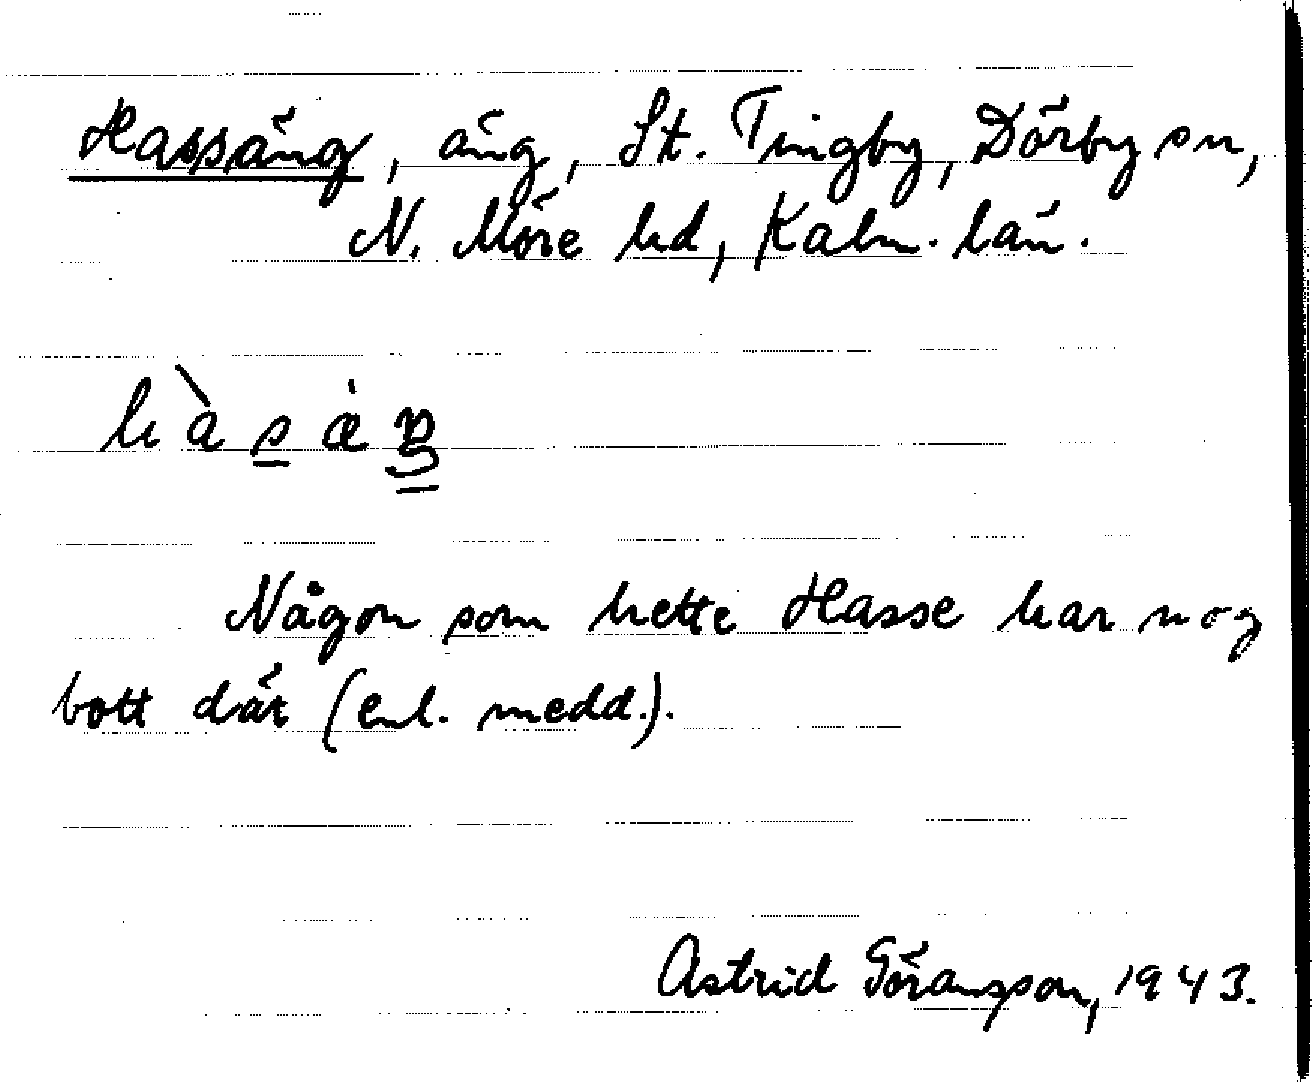 Hassäng, äng, St. Tingby, Dörby sn,
N. Möre hd, Kalm. län.
hàsæ̀ŋ
Någon som hette Hasse har nog
bott där (enl. medd.).
Astrid Göransson, 1943.